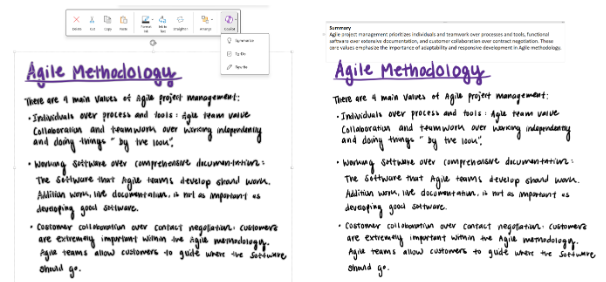 Cut
Copy
Summary
Agile project management prioritizes individuals and teamwork over processes and tools, functional
software over extensive documentation, and customer collaboration over contract negotiation. These
core values emphasize the importance of adaptability and responsive development in Agile methodology.
Agile Methodology
There are 4 main values of Agile project management:
• Individuals over process and tools: Agile team value
Collaboration and teamwork over working independently
and doing things "by the book".
• Working software over comprehensive documentation:
The software that Agile teams develop should work.
Addition work, like documentation, is not as important as
developing good software.
• Customer collaboration over contact negotiation: customers
are extremely important within the Agile methodology.
Agile teams allow customers to guide where the software
should go.
Agile Methodology
There are 4 main values of Agile project management:
• Individuals over process and tools: Agile team value
Collaboration and teamwork over working independently
and doing things "by the book".
• Working software over comprehensive documentation:
The software that Agile teams develop should work.
Addition work, like documentation, is not as important as
developing good software.
• Customer collaboration over contact negotiation: customers
are extremely important within the Agile methodology.
Agile teams allow customers to guide where the software
should go.